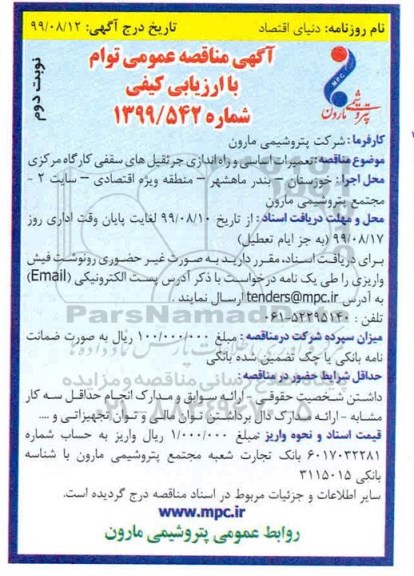 نام روزنامه: دنیای اقتصاد
تاریخ درج آگهی: ۹۹/۰۸/۱۲
نوبت دوم
آگهی مناقصه عمومی توام
با ارزیابی کیفی
شماره ۱۳۹۹/۵۴۲
MPC
پتروشیمی مارون
کارفرما: شرکت پتروشیمی مارون
موضوع مناقصه: تعمیرات اساسی و راه اندازی جرثقیل های سقفی کارگاه مرکزی
محل اجرا: خوزستان – بندر ماهشهر – منطقه ویژه اقتصادی – سایت ۲ -
مجتمع پتروشیمی مارون
محل و مهلت دریافت اسناد: از تاریخ ۹۹/۰۸/۱۰ لغایت پایان وقت اداری روز
۹۹/۰۸/۱۷ (به جز ایام تعطیل)
برای دریافت اسناد، مقرر دارید به صورت غیر حضوری رونوشت فیش
واریزی را طی یک نامه درخواست با ذکر آدرس پست الکترونیکی (Email)
به آدرس tenders@mpc.ir ارسال نمایند.
تلفن: ۵۲۲۹۵۱۴۰-۰۶۱
میزان سپرده شرکت درمناقصه: مبلغ ۱۰۰/۰۰۰/۰۰۰ ریال به صورت ضمانت
نامه بانکی یا چک تضمین شده بانکی
حداقل شرایط حضور در مناقصه:
داشتن شخصیت حقوقی - ارائه سوابق و مدارک انجام حداقل سه کار
مشابه - ارائه مدارک دال برداشتن توان مالی و توان تجهیزاتی و ....
قیمت اسناد و نحوه واریز: مبلغ ۱/۰۰۰/۰۰۰ ریال واریز به حساب شماره
۶۰۱۷۰۳۲۲۸۱ بانک تجارت شعبه مجتمع پتروشیمی مارون با شناسه
بانکی ۳۱۱۵۰۱۵
سایر اطلاعات و جزئیات مربوط در اسناد مناقصه درج گردیده است.
www.mpc.ir
روابط عمومی پتروشیمی مارون
ParsNamadData